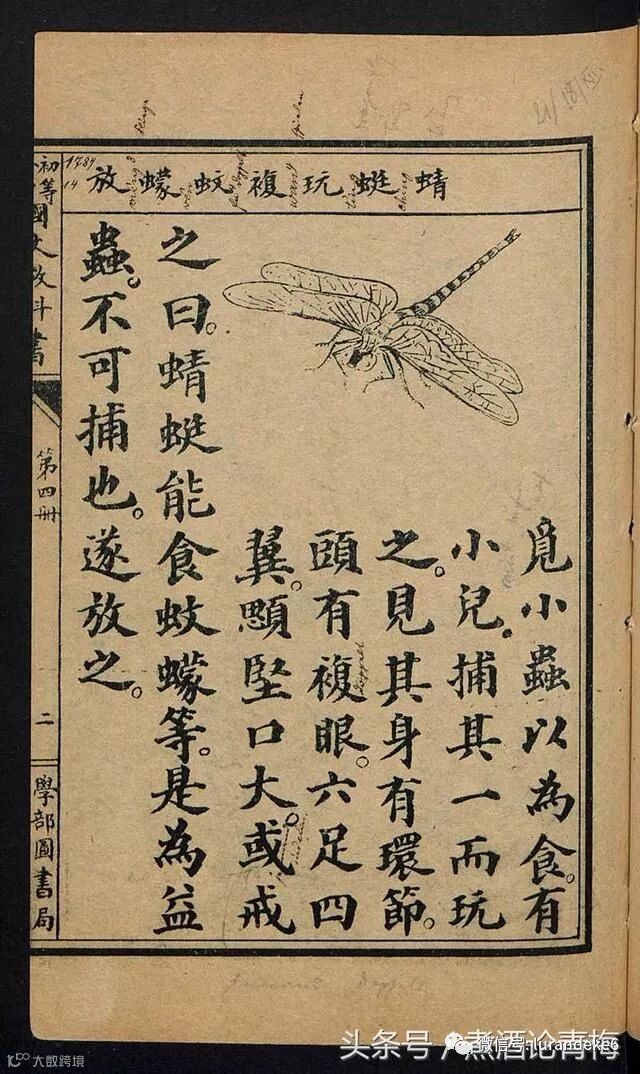 蜻蜓玩複蚊蠓放
覓小蟲以為食。有
小兒。捕其一而玩
之。見其身有環節。
頭有複眼。六足四
翼。堅口大。或戒
之曰。蜻蜓能食蚊蠓等。是為益
蟲。不可捕也。遂放之。
初等國文教科書
第四冊
二
學部圖書局
1784
14
头条号 / 煮酒论青梅
微信号: lurandeke6
大数跨境